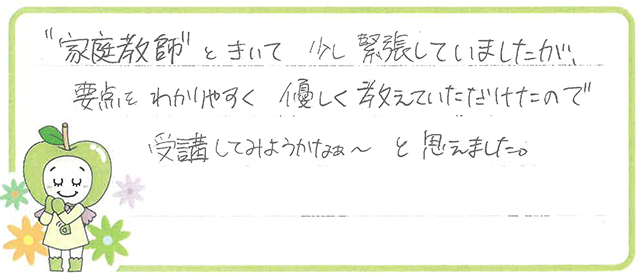 “家庭教師”ときいて 少し緊張していましたが、
要点を わかりやすく 優しく教えていただけたので
受講してみようかなぁ〜 と思えました。